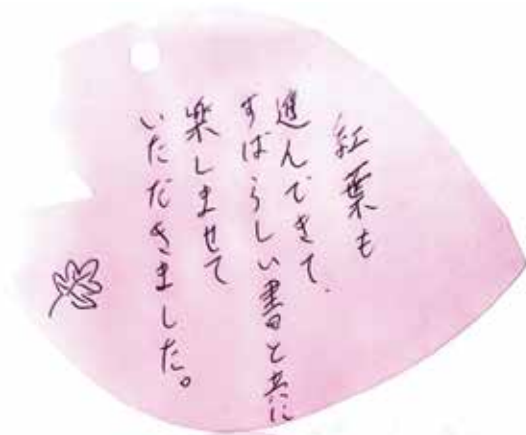 紅葉も
進んできて、
すばらしい書と共に
楽しませて
いただきました。